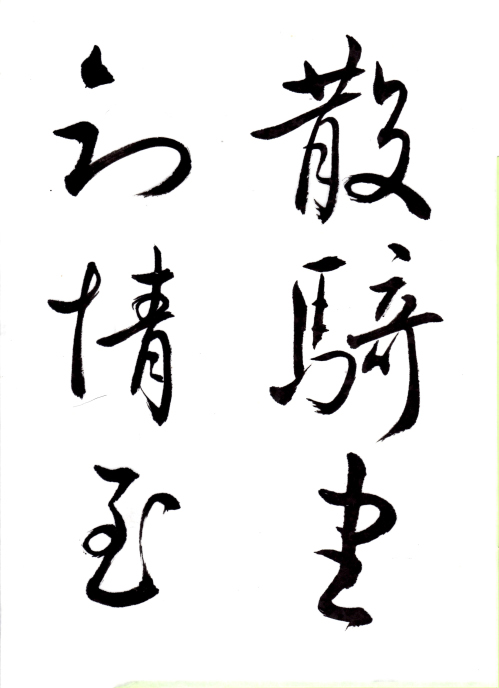 散騎書
情至